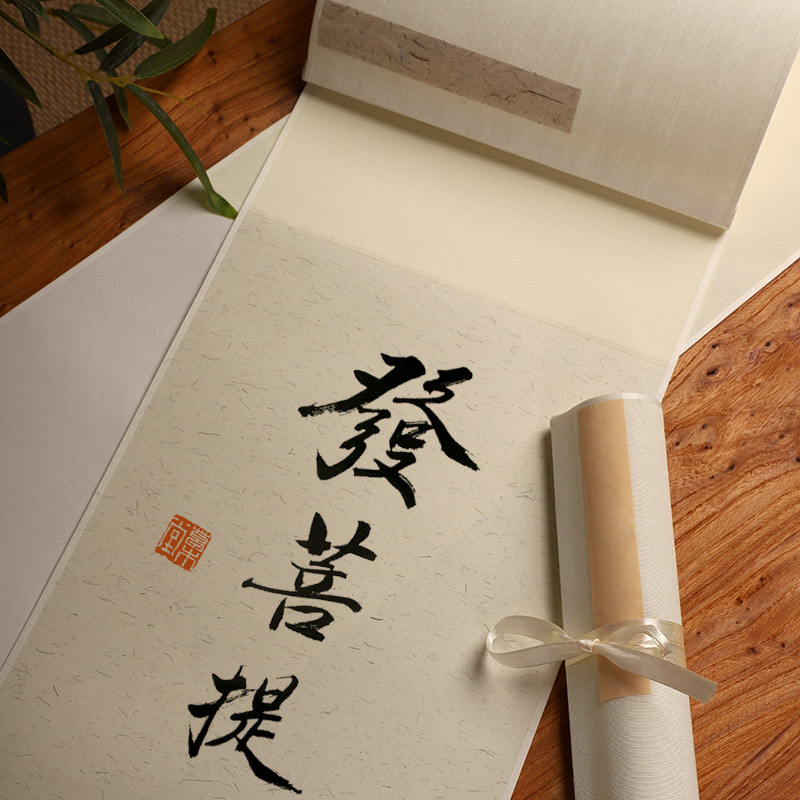 發菩提